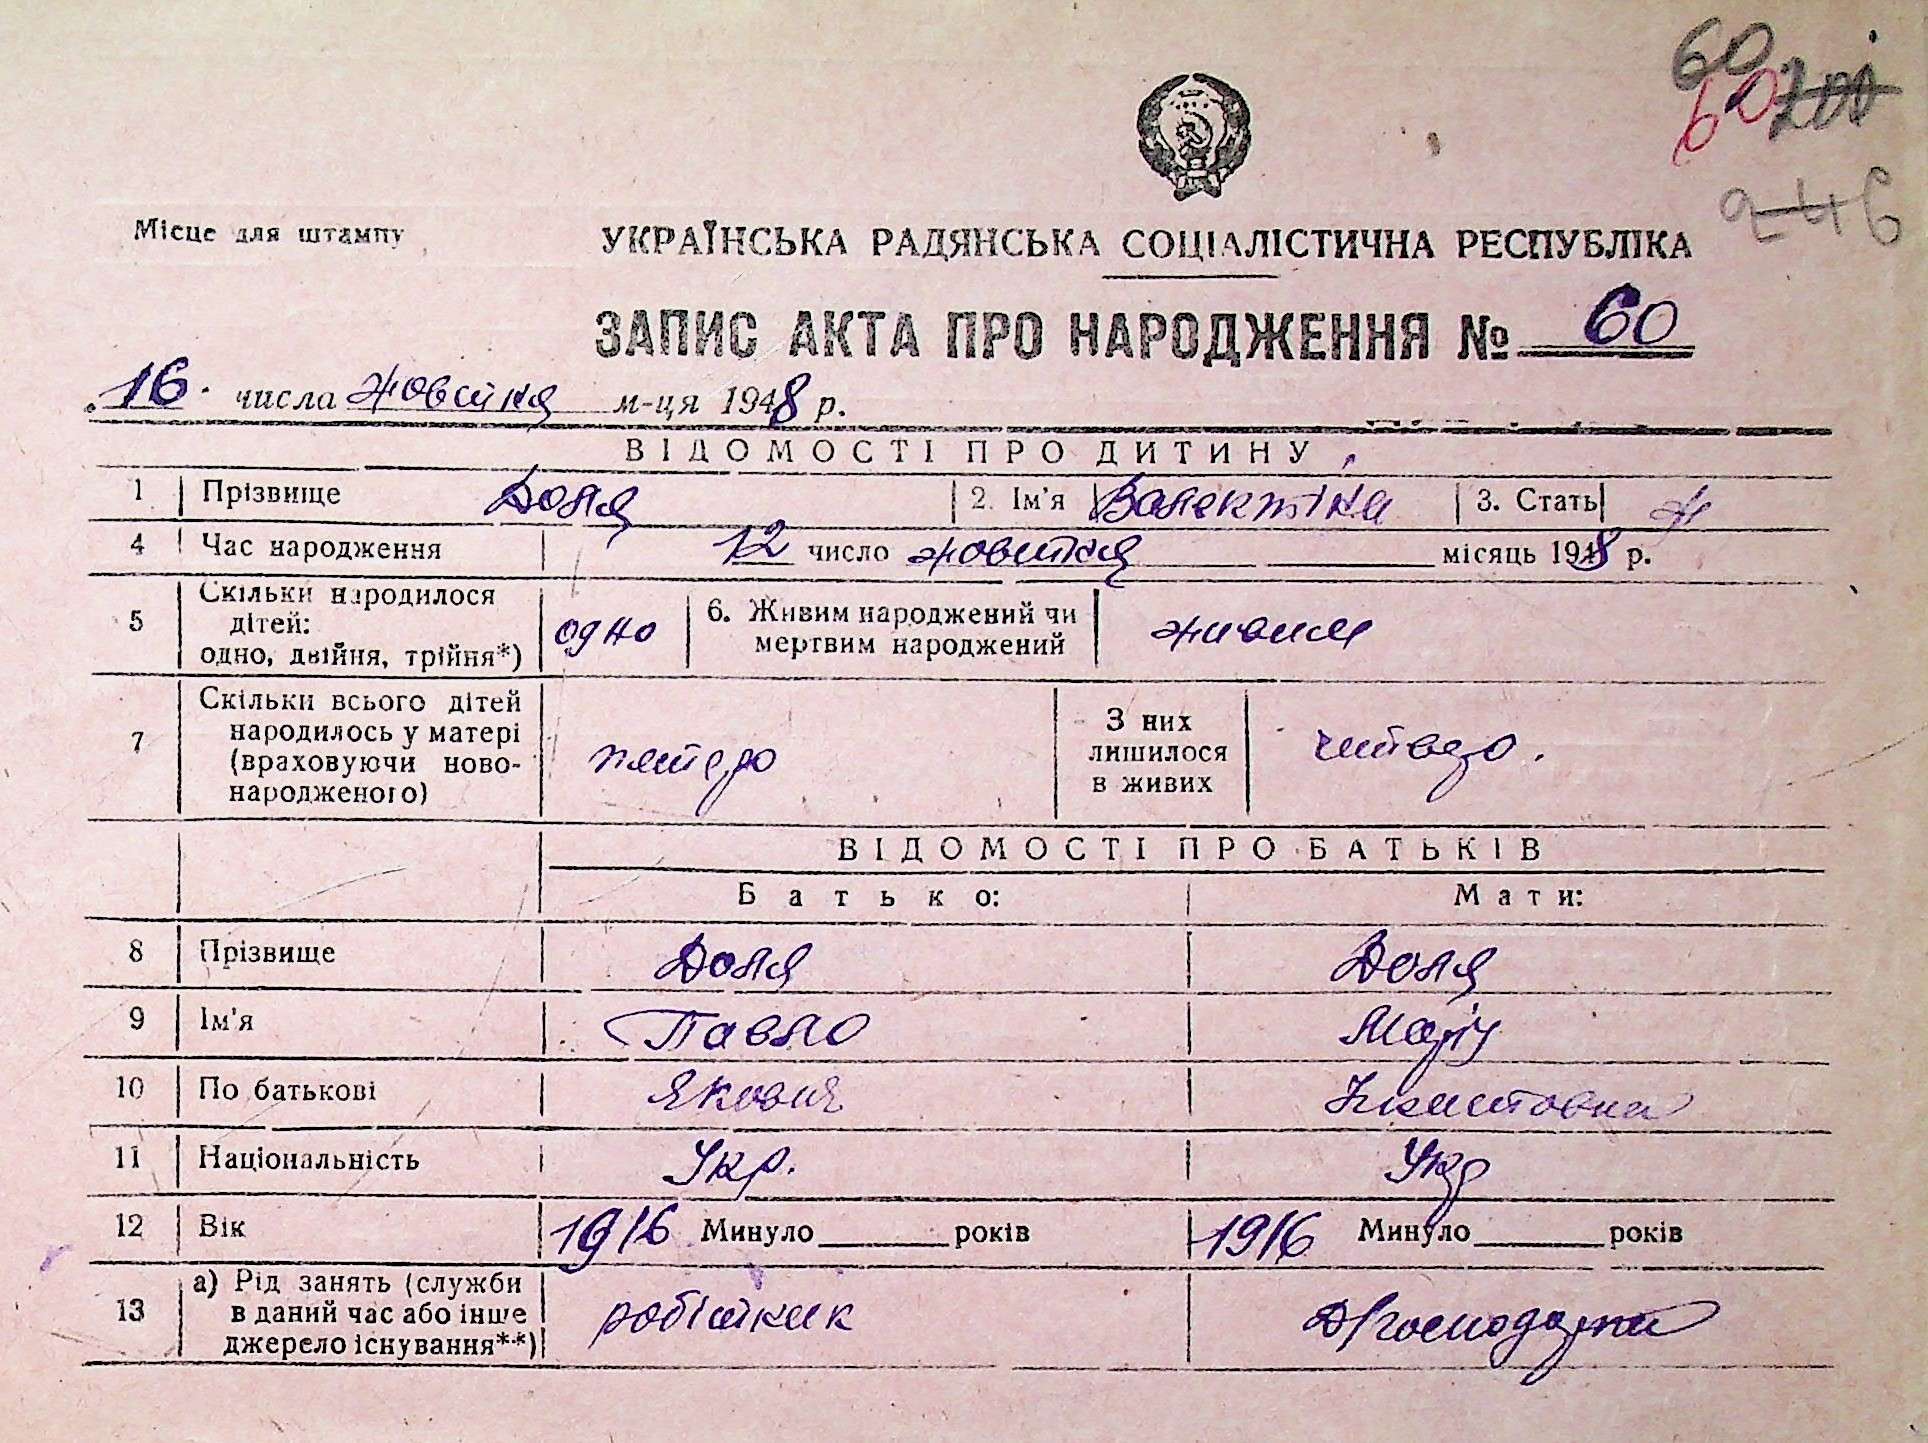 60
60 200
246
Місце для штампу
УКРАЇНСЬКА РАДЯНСЬКА СОЦІАЛІСТИЧНА РЕСПУБЛІКА
ЗАПИС АКТА ПРО НАРОДЖЕННЯ № 60
16 числа жовтня м-ця 1948 р.
ВІДОМОСТІ ПРО ДИТИНУ
1 Прізвище Доля 2. Ім'я Валентіна 3. Стать ж
4 Час народження 12 число жовтня місяць 1948 р.
5 Скільки народилося дітей: одно, двійня, трійня*) одно 6. Живим народжений чи мертвим народжений живим
7 Скільки всього дітей народилось у матері (враховуючи новонародженого) пятеро З них лишилося в живих четверо.
ВІДОМОСТІ ПРО БАТЬКІВ
Батько: Мати:
8 Прізвище Доля Доля
9 Ім'я Павло Марія
10 По батькові Якович
11 Національність Укр. Укр
12 Вік 1916 Минуло років 1916 Минуло років
13 а) Рід занять (служби в даний час або інше джерело існування**) робітник Д/господарка